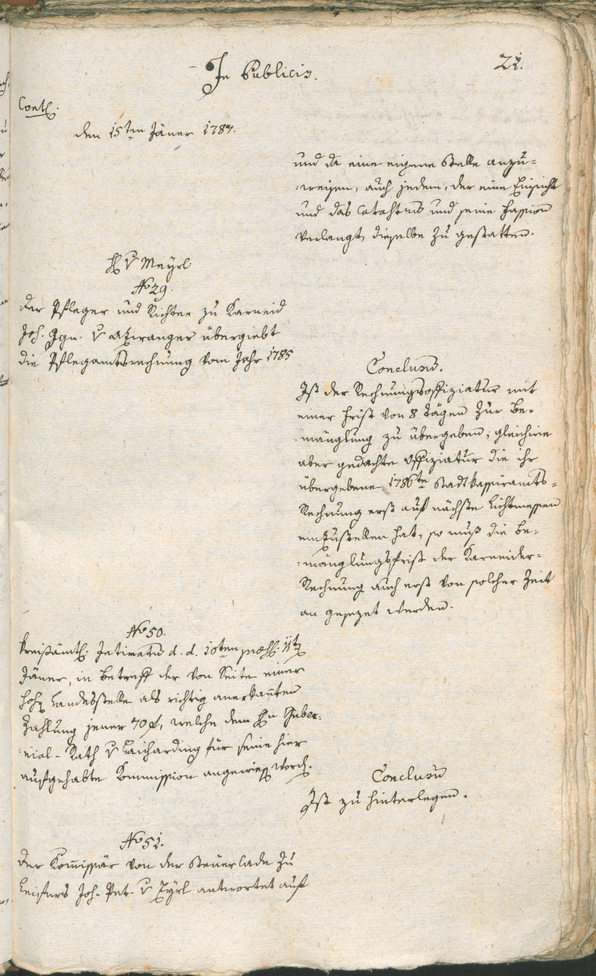 In Publicis.
21.
Contl:
den 15ten Jäner 1787.
und da eine eigene Stelle anzu-
weisen, auch jedem, der eine Einsicht
und das Catastrus und seine Fassion
verlangt, dieselbe zu gestatten.
H: v Meyrl
No 29.
Der Pfleger und Richter zu Karneid
Joh. Ign. v Atzwanger übergiebt
die Pflegamtsrechnung vom Jahr 1785
Conclusum.
Ist der Rechnungsoffiziatur mit
einer Frist von 8 Tägen zur Be-
mänglung zu übergeben; gleichwie
aber gedachte Offiziatur die ihr
übergebene 1786te Stadtkassieramts-
Rechnung erst auf nächste Lichtmessen
einzustellen hat, so muß die Be-
mänglungsfrist der Karneider-
Rechnung auch erst von solcher Zeit
an gesezet werden.
No 50.
Kreisämtl: Intimatum d. d. 10ten
Jäner, in Betreff der von Seite einer
hohen Landesstelle als richtig anerkannten
Zahlung jener 70 f, welche dem Hn Guber-
nial-Rath v Laicharding für seine hier
aufgehabte Kommission angewiesen word.
Conclusum
Ist zu hinterlegen.
No 51.
Der Kommissär von der Steuerlade zu
Leifers Joh. Pet. v Zyrl antwortet auf